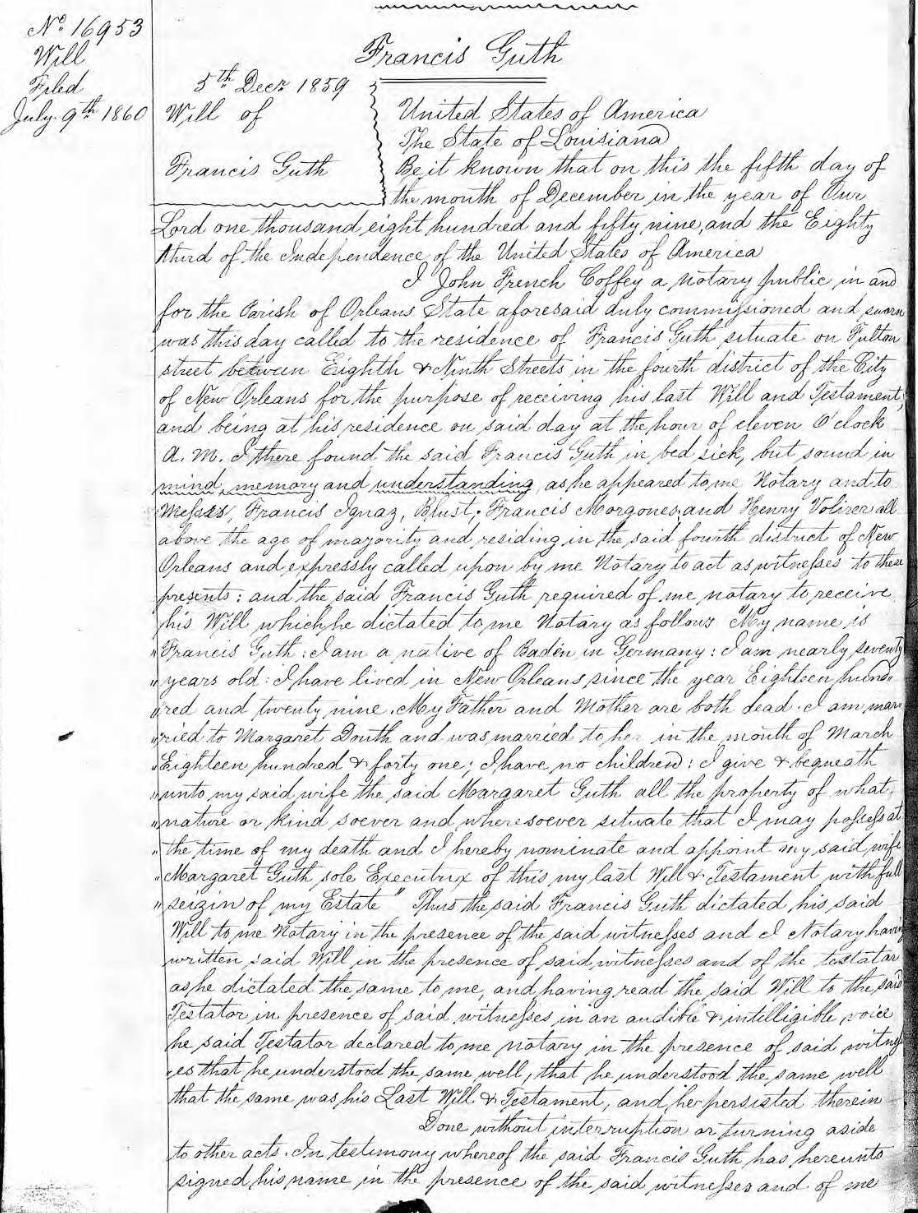 No. 16953
Will
Filed
July 9th 1860
Francis Guth
5th Decr 1859
Will of
Francis Guth
United States of America
The State of Louisiana
Be it known that on this the fifth day of
the month of December in the year of Our
Lord one thousand eight hundred and fifty nine, and the Eighty
third of the Independence of the United States of America
I John French Coffey a notary public in and
for the Parish of Orleans State aforesaid duly commissioned and sworn
was this day called to the residence of Francis Guth situate on Fulton
street between Eighth & Ninth Streets in the fourth district of the City
of New Orleans for the purpose of receiving his last Will and Testament,
and being at his residence on said day at the hour of eleven O'clock
A.M. I there found the said Francis Guth in bed sick, but sound in
mind, memory and understanding, as he appeared to me Notary and to
Messrs, Francis Ignaz, Blust, Francis Morgones, and Henry Volirer all
above the age of majority and residing in the said fourth district of New
Orleans and expressly called upon by me Notary to act as witnesses to these
presents: and the said Francis Guth required of me notary to receive
his Will which he dictated to me Notary as follows "My name is
"Francis Guth: I am a native of Baden in Germany: I am nearly seventy
"years old: I have lived in New Orleans since the year Eighteen hund-
"red and twenty nine. My Father and Mother are both dead. I am mar
"ried to Margaret Douth and was married to her in the month of March
"Eighteen hundred & forty one; I have no children: I give & bequeath
"unto my said wife the said Margaret Guth all the property of what
"nature or kind soever and wheresoever situate that I may possess at
"the time of my death and I hereby nominate and appoint my said wife
"Margaret Guth sole Executrix of this my last Will & Testament with full
"seizin of my Estate" Thus the said Francis Guth dictated his said
Will to me Notary in the presence of the said witnesses and I Notary having
written said Will in the presence of said witnesses and of the testator
as he dictated the same to me, and having read the said Will to the said
Testator in presence of said witnesses in an audible & intelligible voice
he said Testator declared to me notary in the presence of said witness
es that he understood the same well, that he understood the same well
that the same was his Last Will & Testament, and he persisted therein
Done without interruption or turning aside
to other acts. In testimony whereof the said Francis Guth has hereunto
signed his name in the presence of the said witnesses and of me